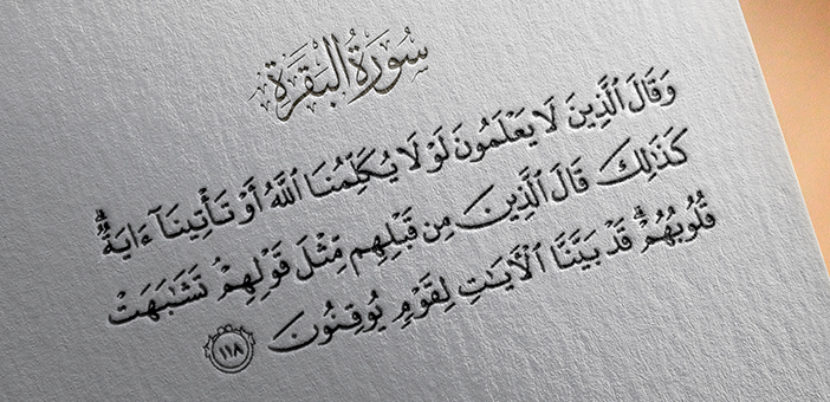 سُورَةُ البَقَرَةِ
وَقَالَ ٱلَّذِينَ لَا يَعۡلَمُونَ لَوۡلَا يُكَلِّمُنَا ٱللَّهُ أَوۡ تَأۡتِينَآ ءَايَةٞۗ
كَذَٰلِكَ قَالَ ٱلَّذِينَ مِن قَبۡلِهِم مِّثۡلَ قَوۡلِهِمۡۘ تَشَٰبَهَتۡ
قُلُوبُهُمۡۗ قَدۡ بَيَّنَّا ٱلۡأٓيَٰتِ لِقَوۡمٖ يُوقِنُونَ ١١٨